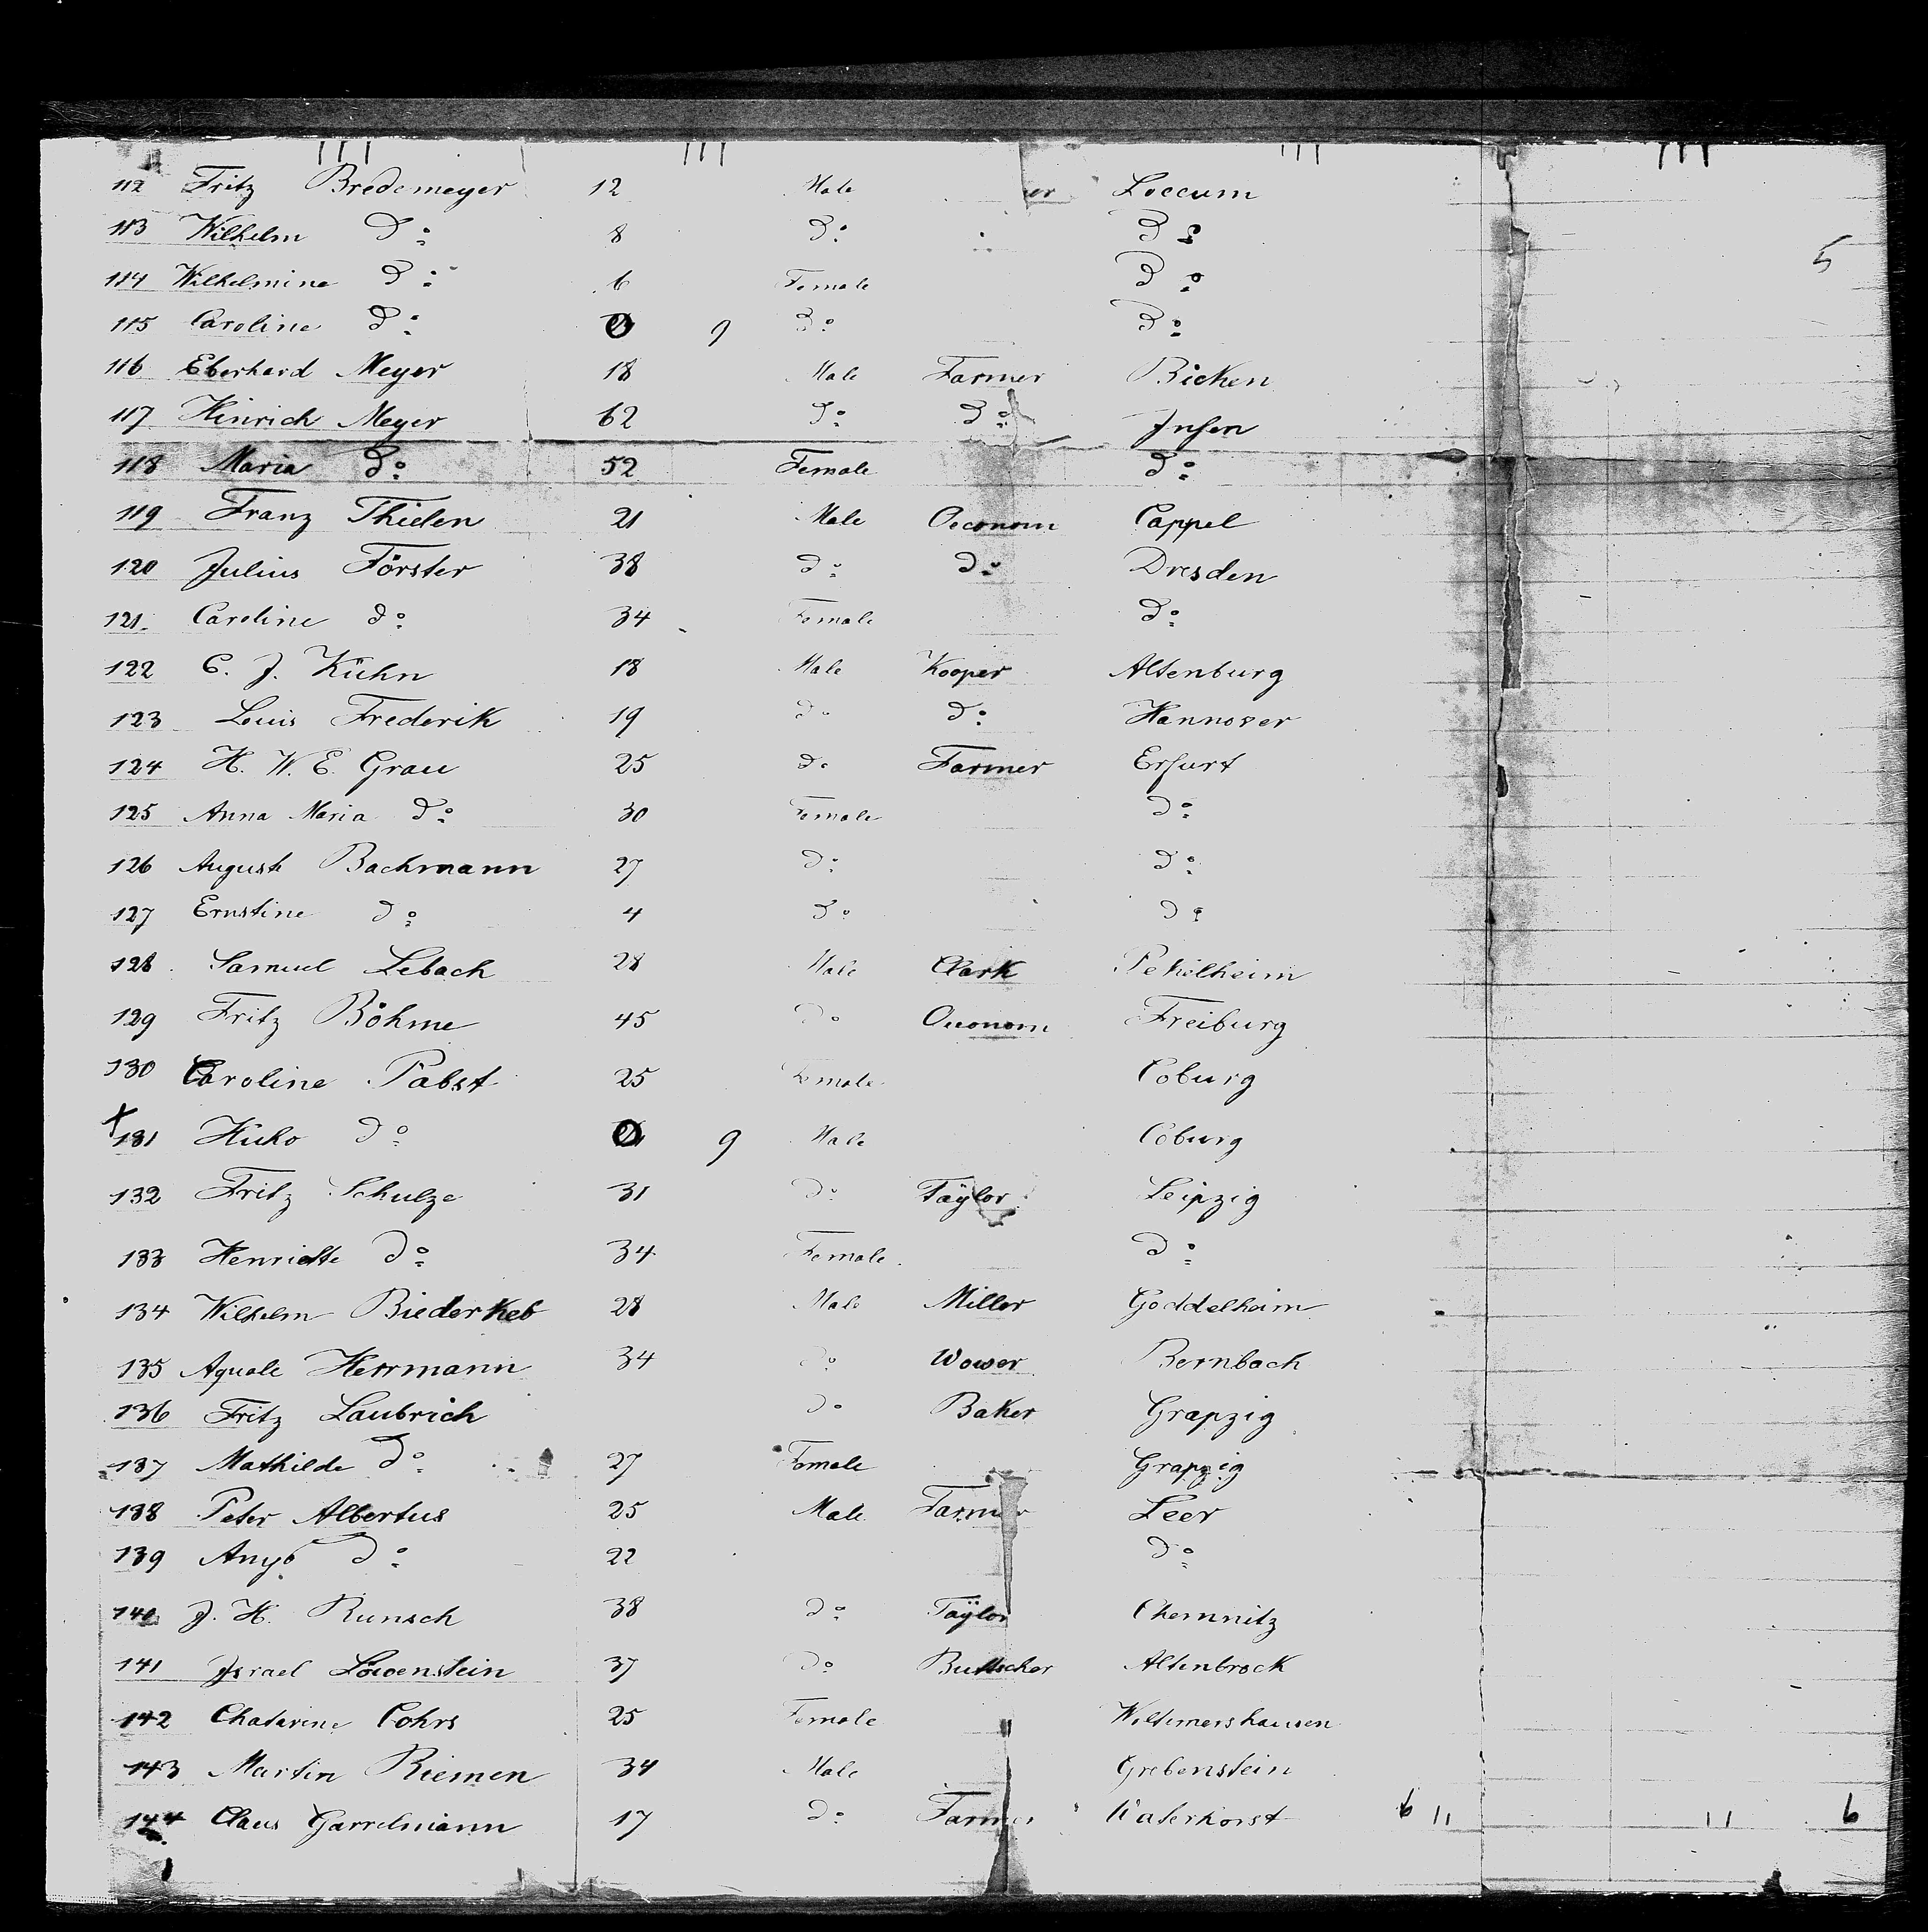 112 Fritz Bredemeyer 12 Male er Loccum
113 Wilhelm do 8 do do
5
114 Wilhelmine do 6 Female do
115 Caroline do 9 do do
116 Eberhard Meyer 18 Male Farmer Bicken
117 Hinrich Meyer 62 do do Jnsen
118 Maria do 52 Female do
119 Franz Thielen 21 Male Oeconom Cappel
120 Julius Förster 38 do do Dresden
121 Caroline do 34 Female do
122 C. J. Kühn 18 Male Kooper Altenburg
123 Louis Frederik 19 do do Hannover
124 H. W. E. Grau 25 do Farmer Erfurt
125 Anna Maria do 30 Female do
126 Auguste Bachmann 27 do do
127 Ernstine do 4 do do
128 Samuel Lebach 28 Male Clark
129 Fritz Böhme 45 do Oeconom Freiburg
130 Caroline Pabst 25 Female Coburg
x
131 do 9 Male Coburg
132 Fritz Schulze 31 do Taÿlor Leipzig
133 Henriette do 34 Female do
134 Wilhelm Biederkeb 28 Male Miller Goddelheim
135 Herrmann 34 do Wower Bernbach
136 Fritz Laubrich do Baker Grapzig
137 Mathilde do 27 Female Grapzig
138 Peter Albertus 25 Male Farmer Leer
139 do 22 do
140 J. H. Runsch 38 do Taÿlor Chemnitz
141 Jsrael Löwenstein 37 do Buttscher Altenbrock
142 Chatarine Cohrs 25 Female
143 Martin Riemen 34 Male Grebenstein
144 Claus Garrelmann 17 do Farmer Waterhorst 6 11 11 6